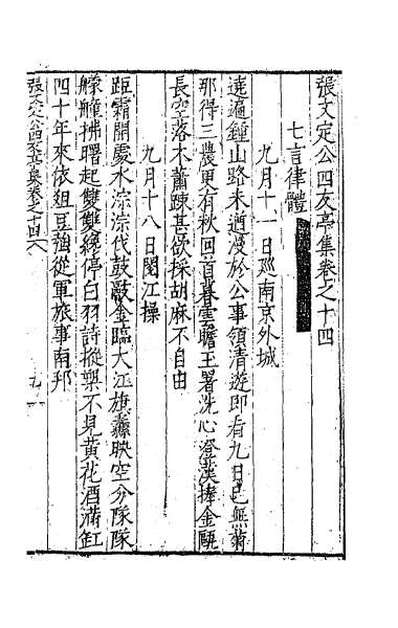 張文定公四友亭集卷之十四
七言律體
九月十一日廵南京外城
遶遍鍾山路未遒漫於公事領清遊即看九日已無菊
那得三農更有秋回首暮雲瞻王署洗心澄漢捧金甌
長空落木蕭踈甚欲採胡麻不自由
九月十八日閱江操
距霜開處水淙淙伐鼓敲金臨大江旗纛映空分隊隊
艨艟拂曙起雙雙纔停白羽詩摐槊不見黃花酒滿缸
四十年來依俎豆強從軍旅事南邦
張文定公四友亭集卷之十四
九